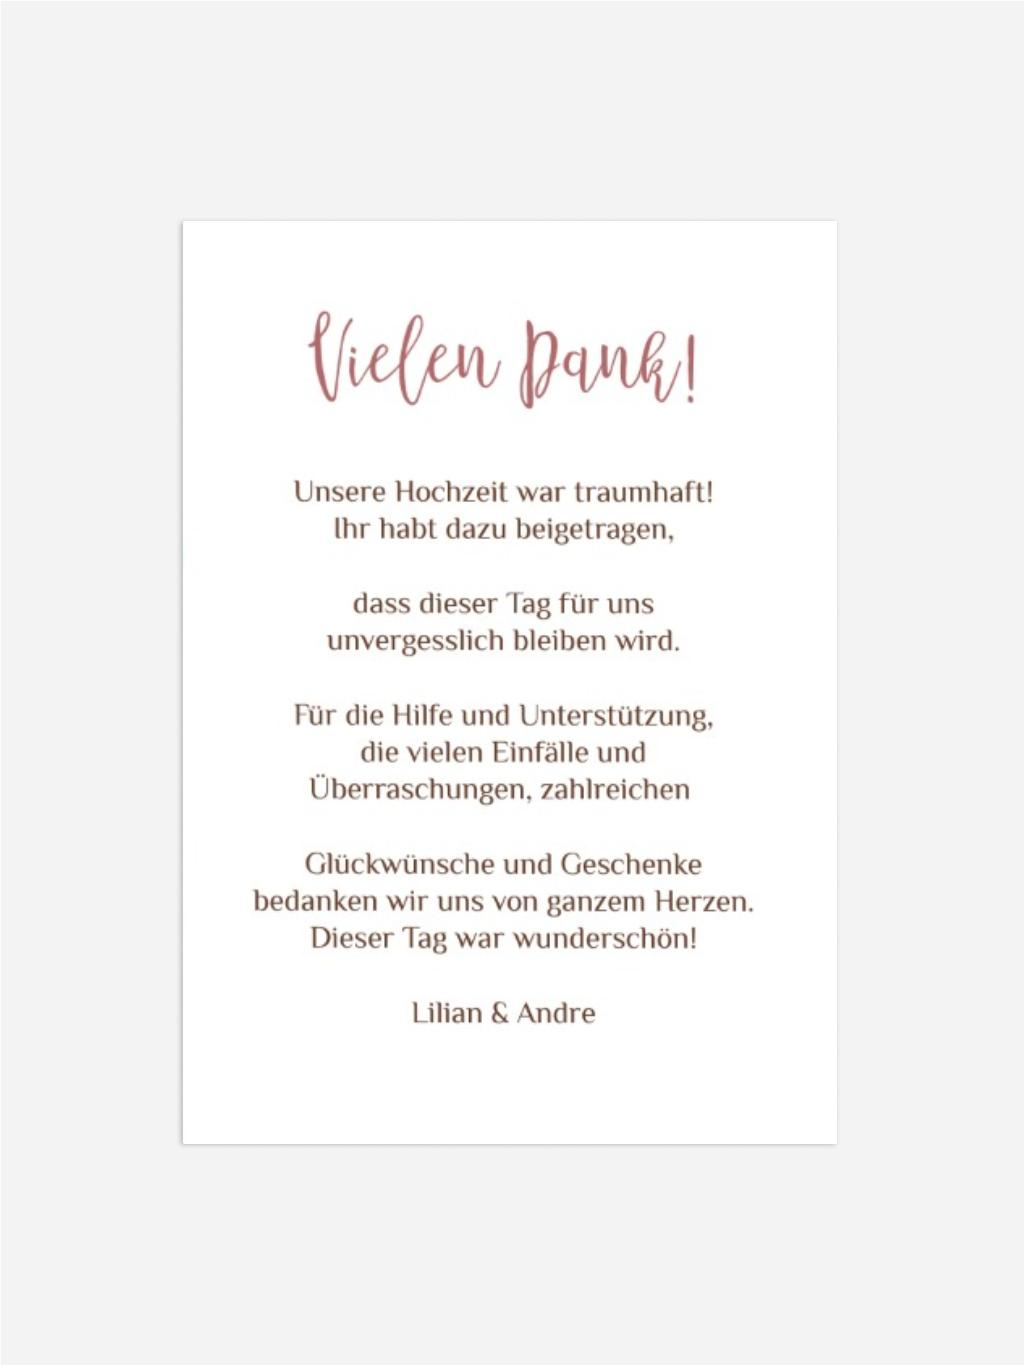 Vielen Dank!
Unsere Hochzeit war traumhaft!
Ihr habt dazu beigetragen,
dass dieser Tag für uns
unvergesslich bleiben wird.
Für die Hilfe und Unterstützung,
die vielen Einfälle und
Überraschungen, zahlreichen
Glückwünsche und Geschenke
bedanken wir uns von ganzem Herzen.
Dieser Tag war wunderschön!
Lilian & Andre